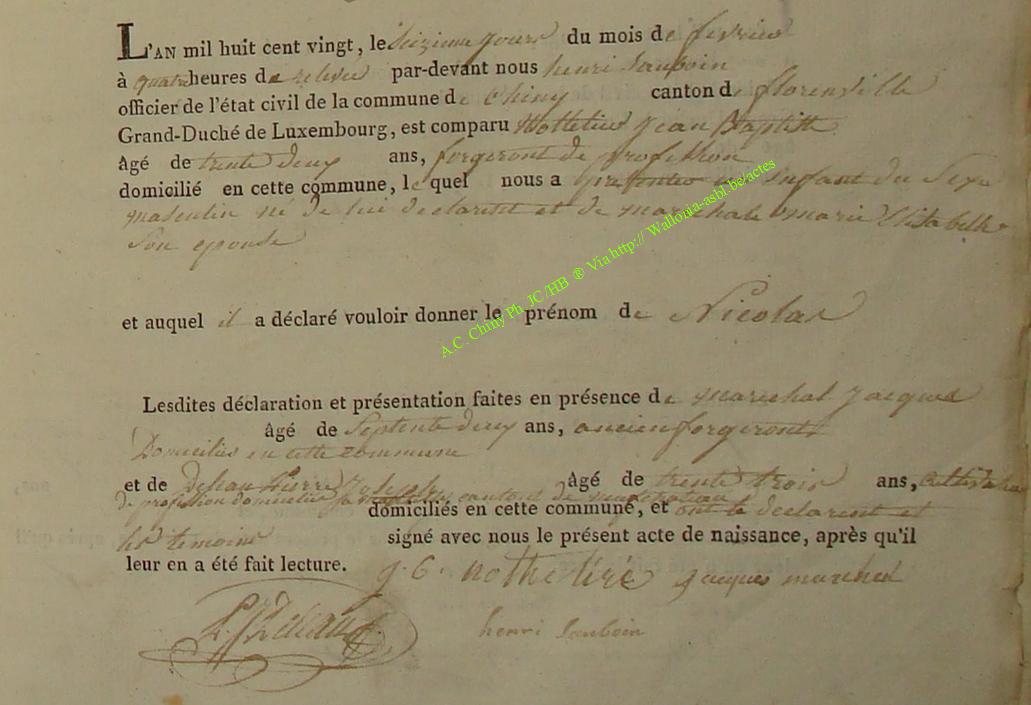 L'AN mil huit cent vingt, le seizieme jour du mois de fevrier
à quatre heures de relevée par-devant nous henri Sauboin
officier de l'état civil de la commune de Chiny canton de florenville
Grand-Duché de Luxembourg, est comparu Jean Baptiste
âgé de trente deux ans, forgeront de profession
domicilié en cette commune, le quel nous a un enfant du Sexe
masculin né de lui declarent et de marechale marie Elisabethe
Son epouse
et auquel il a déclaré vouloir donner le prénom de Nicolas
Lesdites déclaration et présentation faites en présence de marechal Jacques
âgé de Septente deux ans, ancien forgeront
Domicilies en cette commune
et de Pierre âgé de trente trois ans,
de profession domicilier cantont de
domiciliés en cette commune, et ont le declarent et
les temoins signé avec nous le présent acte de naissance, après qu'il
leur en a été fait lecture. j. b. Jacques
henri Sauboin
A.C. Chiny Ph. JC /HB ® Via http:// Wallonia-asbl.be/actes